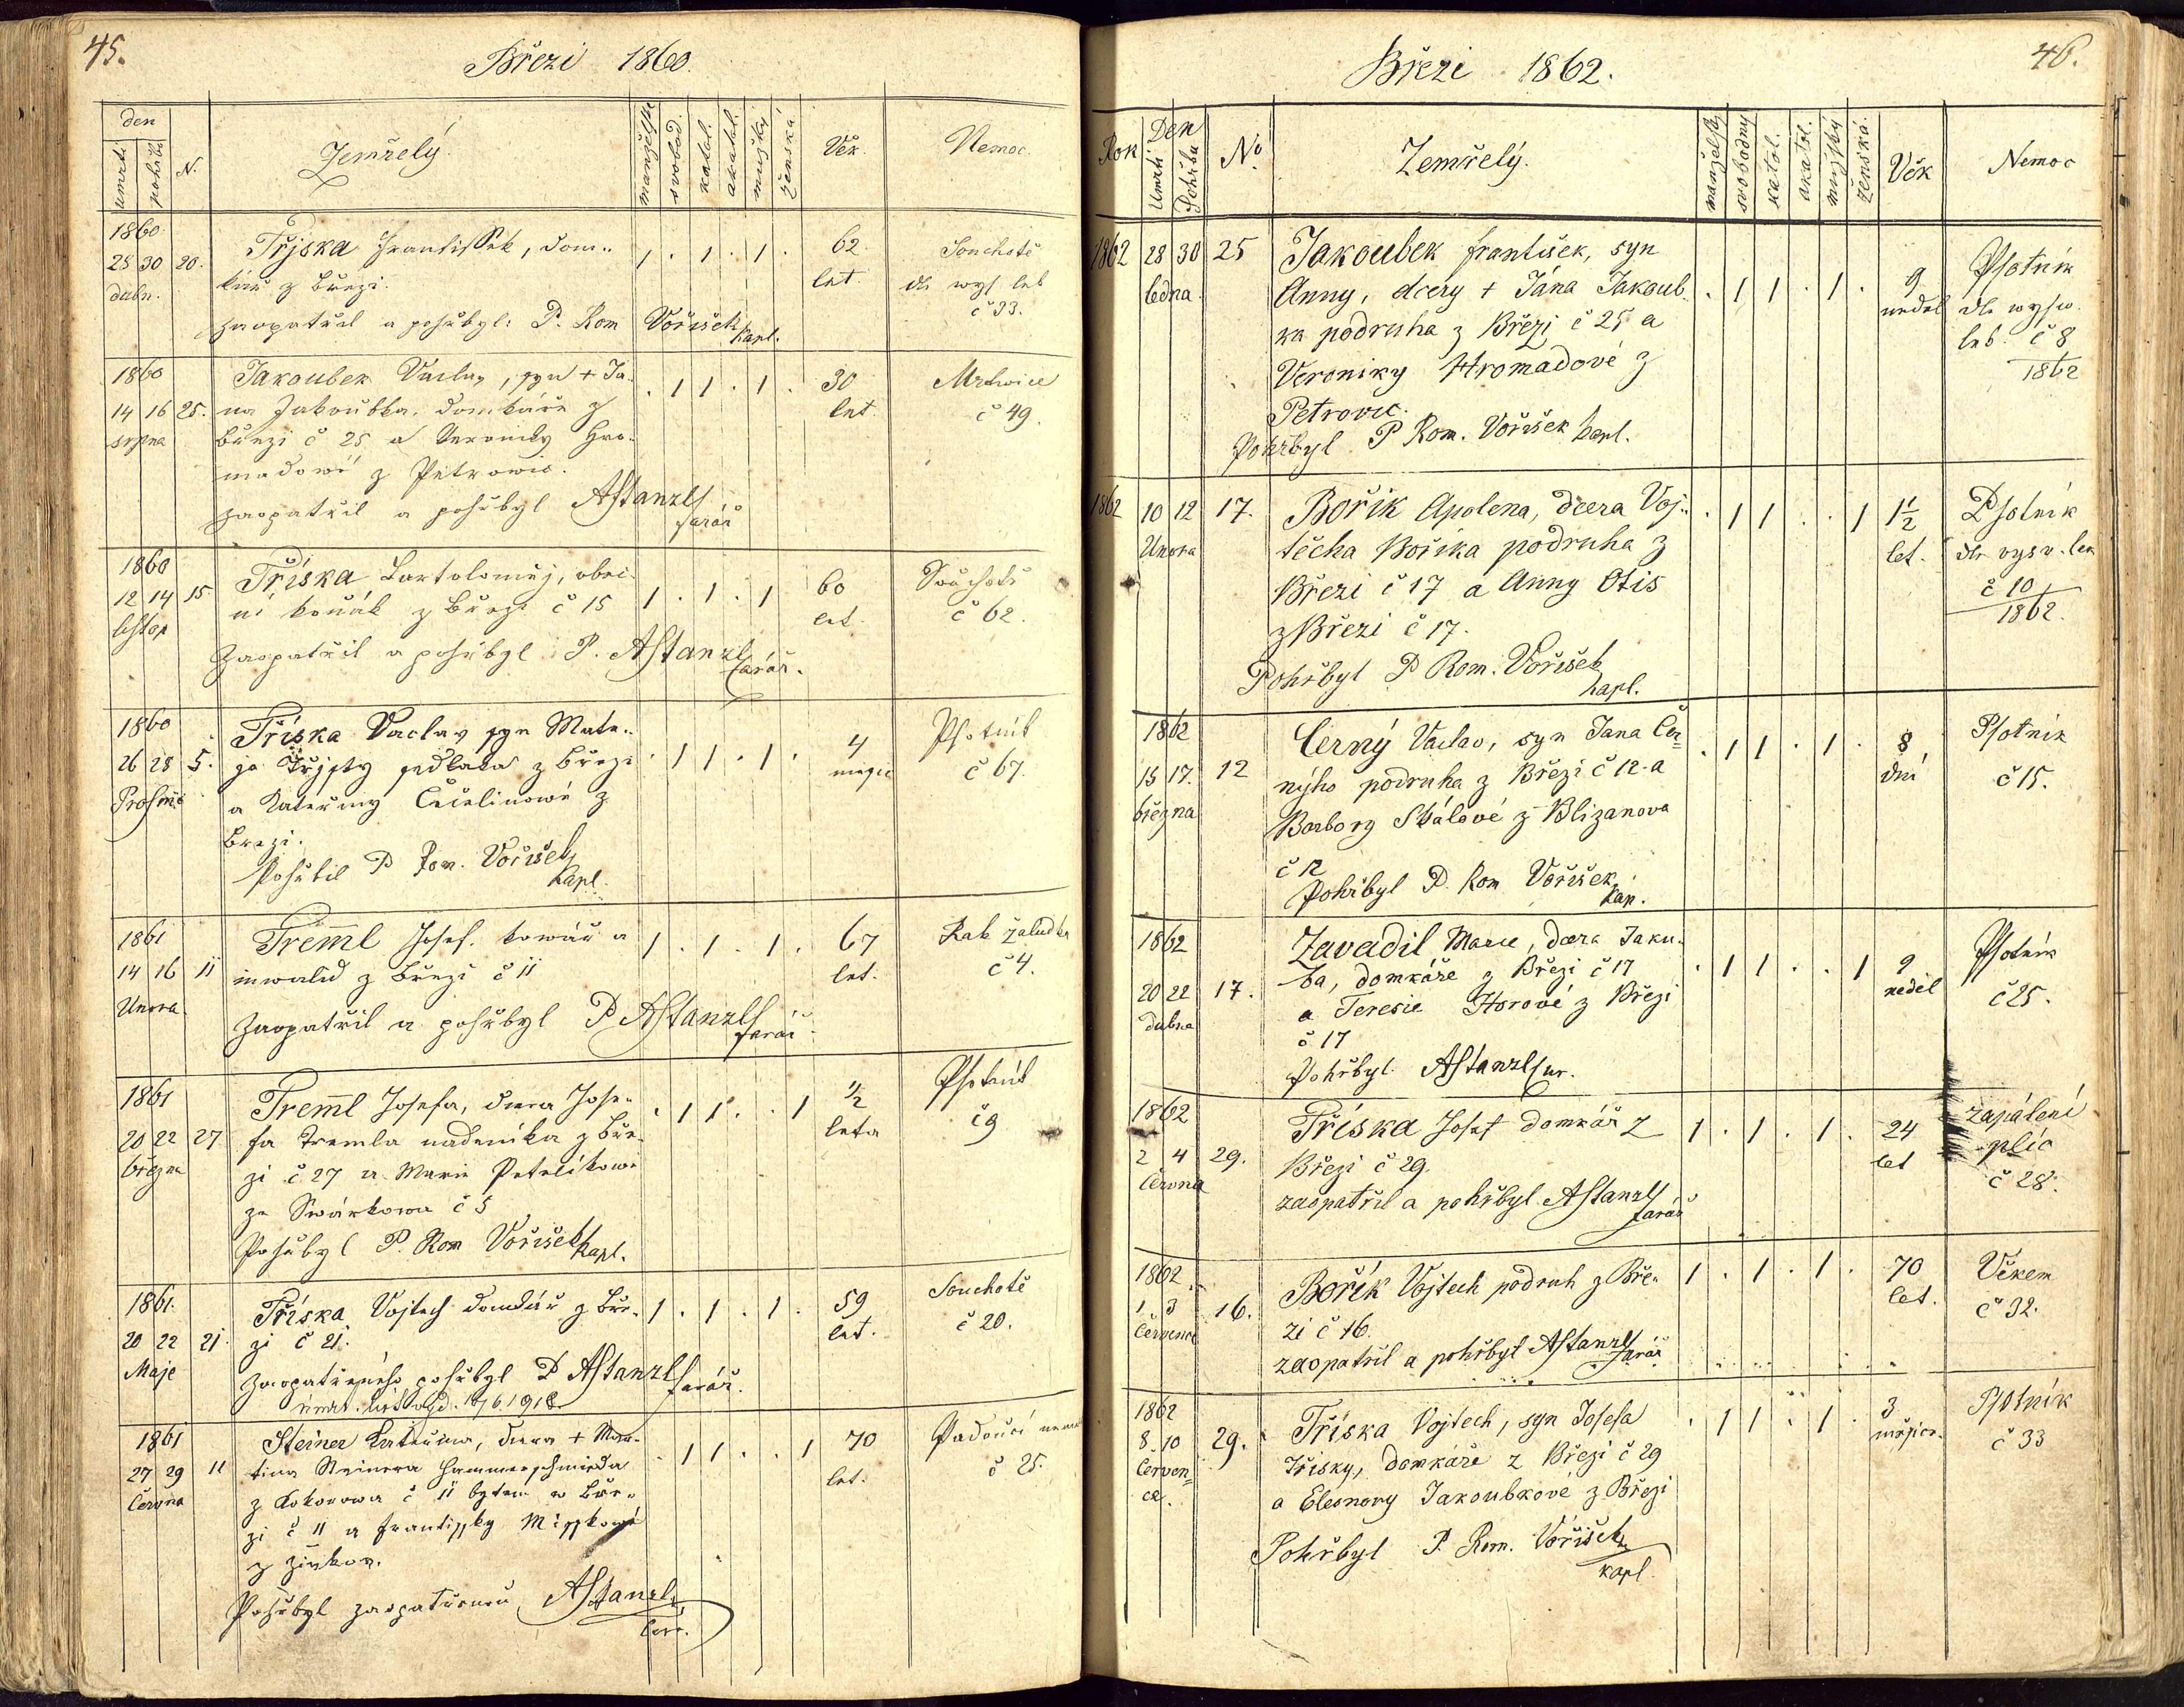 45.
Březí 1860.
den
umrtí
pohřbu
N.
Zemřelý.
manželský
svobod.
katol.
akatol.
mužský
ženská
Věk.
Nemoc.
1860
28 30 20. Třjska Frantissek, dom-
dubn. kář z Březi.
62 let.
Souchotě
dle wys. leb
č 33.
zaopatřil a pohřbyl: P. Rom Voříšek kapl.
1860
14 16 25.
srpna
Jakoubek Vaclav, syn + Ja-
na Jakoubka, domkáře z
Březi č 25 a Veroniky Hro-
madowé z Petrowic.
zaopatřil a pohřbyl AStanzl
farář
30
let.
Mrtwice
č 49.
1860
12 14 15
listop
Tříska Bartoloměj, obec-
ní kovář z Březi č 15
Zaopatřil a pohřbyl P. AStanzl
farář.
60
let.
Souchotě
č 62.
1860
26 28 5.
Prosince
Tříska Vaclav syn Matě-
je Třjsky sedláka z Březi
a Kateřiny z
Brezi.
Pohřbil P Rom. Voříšek
kapl.
4
měsíce
Psotník
č 67.
1861
14 16 11
Unora.
Treml Josef. kowář a
inwalid z Březi č 11
Zaopatřil a pohřbyl P AStanzl
farář.
67
let.
Rak žaludka
č 4.
1861
20 22 27
března
Treml Josefa, dcera Jose-
fa Tremla nadeníka z Bře-
zi č 27 a Marie Petelíkowé
ze Swárkowa č 5
Pohřbyl P. Rom Voříšek kapl.
1/2
leta
Psotník
č 9
1861.
20 22 21.
Maje
Tříska Vojtech domkář z Bře-
zi č 21.
Zaopatřeného pohřbyl P AStanzl
farář.
59
let.
Souchotě
č 20.
úmrt. list vyd. 1918
1861
27 29 11
Června
Steiner Kateřina, dcera + Mar-
tina Steinera Hammerschmieda
z Kokorowa č 11 bytem w Bře-
zi č 11 a Frantissky
z
Pohřbyl zaopatřenou AStanzl
70
let.
Padoucí nemoc
č 25.
46.
Březi 1862.
Rok
Den
Umrtí
Pohřbu
No
Zemřelý.
manželský
svobodný
katol.
akatol.
mužský
ženská.
Věk
Nemoc
1862 28 30 25
ledna.
Jakoubek František, syn
Anny, dcery + Jána Jakoub-
ka podruha z Březi č 25 a
Veroniky Hromadové z
Petrovic.
Pohřbyl P Rom. Vořišek kapl.
9
neděl
Psotnik
dle wysw.
leb. č 8
1862
1862 10 12 17.
Unora
Bořík Apolena, dcera Voj-
těcha Boříka podruha z
Březi č 17 a Anny Otis
z Březi č 17.
Pohřbyl P Rom. Voříšek
kapl.
1 1/2
let.
Psotnik
dle vysv. leb
č 10
1862.
1862
15 17. 12
března
Černý Vaclav, syn Jana Čer-
nýho podruha z Březi č 12 a
Barbory Skálové z Blizanova
č 12
Pohřbyl P. Rom Voříšek
kap.
8
dní
Psotnik
č 15.
1862
20 22 17.
dubna
Zavadil Marie, dcera Jaku-
ba, domkáře z Březi č 17
a Teresie Horové z Březi
č 17
Pohřbyl. AStanzl far.
9
neděl
Psotnik
č 25.
1862
2 4 29.
Června
Tříska Josef domkář z
Březi č 29.
zaopatřil a pohřbyl AStanzl
farář
24
let
zapálení
plic
č 28.
1862
1 3 16.
Července
Bořík Vojtech podruh z Bře-
zi č 16.
zaopatřil a pohřbyl AStanzl
farář
70
let.
Věkem
č 32.
1862
8 10 29.
Červen-
ce.
Tříska Vojtech, syn Josefa
Třisky, domkáře z Březi č 29
a Eleonory Jakoubkové z Březi
Pohřbyl P. Rom. Voříšek
kapl.
3
měsíce.
Psotnik
č 33